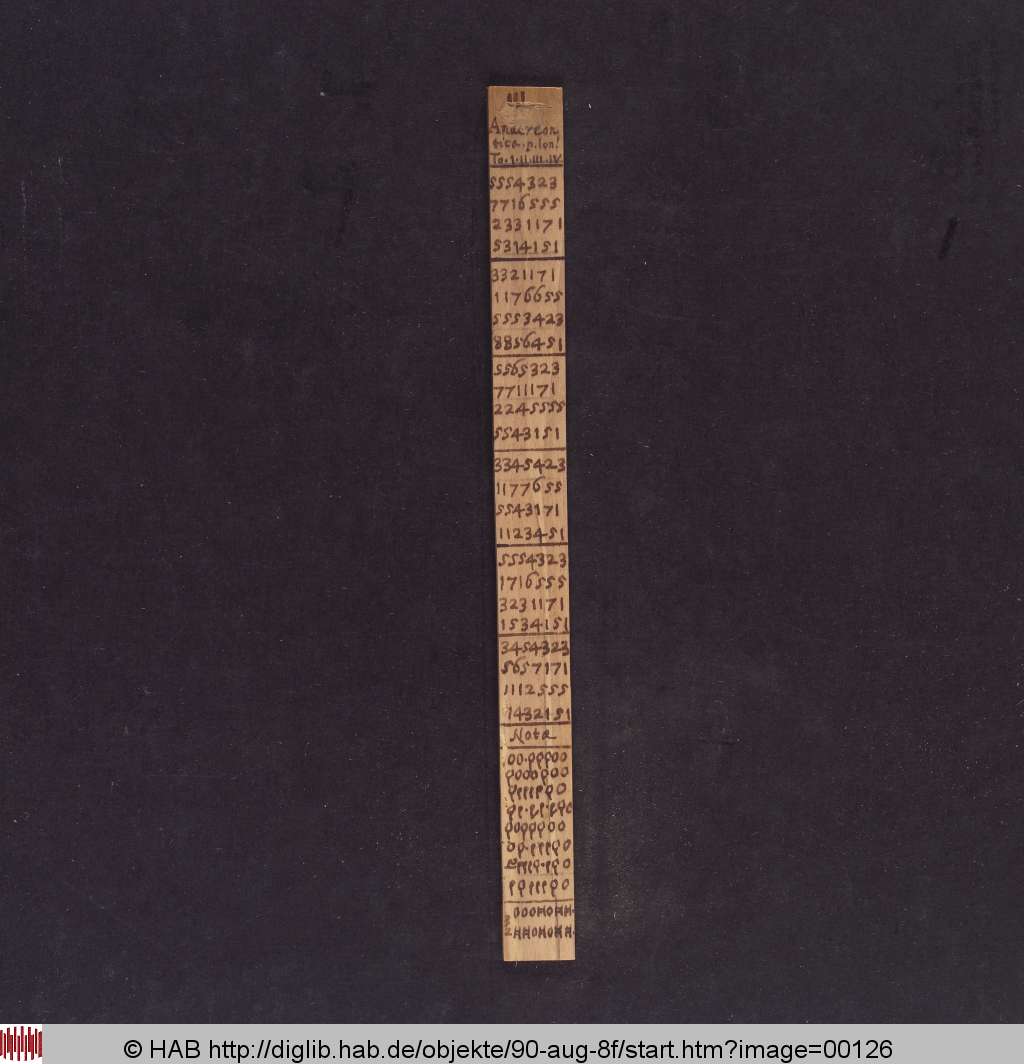 III
Anacreon
tica. p. lon!
To. I. II. III. IV
5554323
7716555
2331171
5314151
3321171
1176655
5553423
8856451
5565323
7711171
2245555
5543151
3345423
1177655
5543171
1123451
5554323
1716555
3231171
1534151
3454323
5657171
1112555
1432151
Nota
© HAB http://diglib.hab.de/objekte/90-aug-8f/start.htm?image=00126